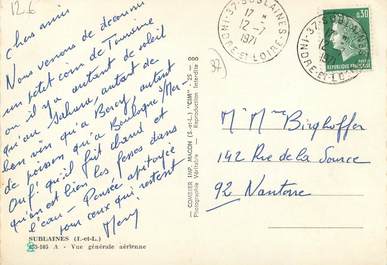 12 €
Chers amis
Nous venons de découvrir
un petit coin de Touraine
où il y a autant de soleil
qu'au Sahara, autant de
bon vin qu'à Bercy autant
de poisson qu'à Boulogne s/Mer.
Ouf! qu'il fait chaud et
qu'on est bien les fesses dans
l'eau - Pensée apitoyée
pour ceux qui restent
SUBLAINES (I.-et-L.)
A - Vue générale aérienne
COMBIER IMP. MACON (S.-et-L.) "CIM"
Photographie Véritable - Reproduction Interdite
37-SUBLAINES
17 H
12-7
1971
INDRE-ET-LOIRE
37-SUBLAINES
INDRE-ET-LOIRE
0,30
REPUBLIQUE FRANÇAISE
37
M. Mme Binghoffer
142 Rue de la Source
92 Nanterre